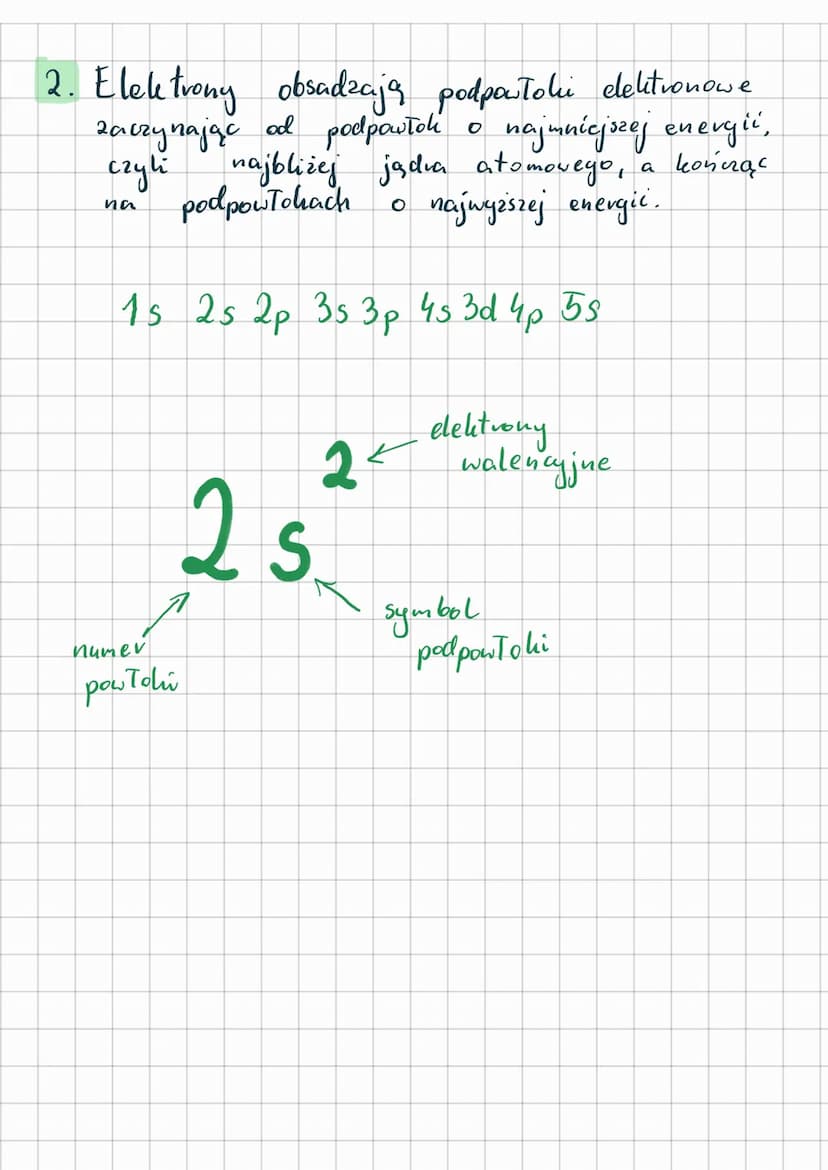 2. Elektrony obsadzają podpowłoki elektronowe
zaczynając od podpowłok o najmniejszej energii,
czyli najbliżej jądra atomowego, a kończąc
na podpowłokach o najwyższej energii.
1s 2s 2p 3s 3p 4s 3d 4p 5s
elektrony
walencyjne
2
2 s
symbol
podpowłoki
numer
powłoki